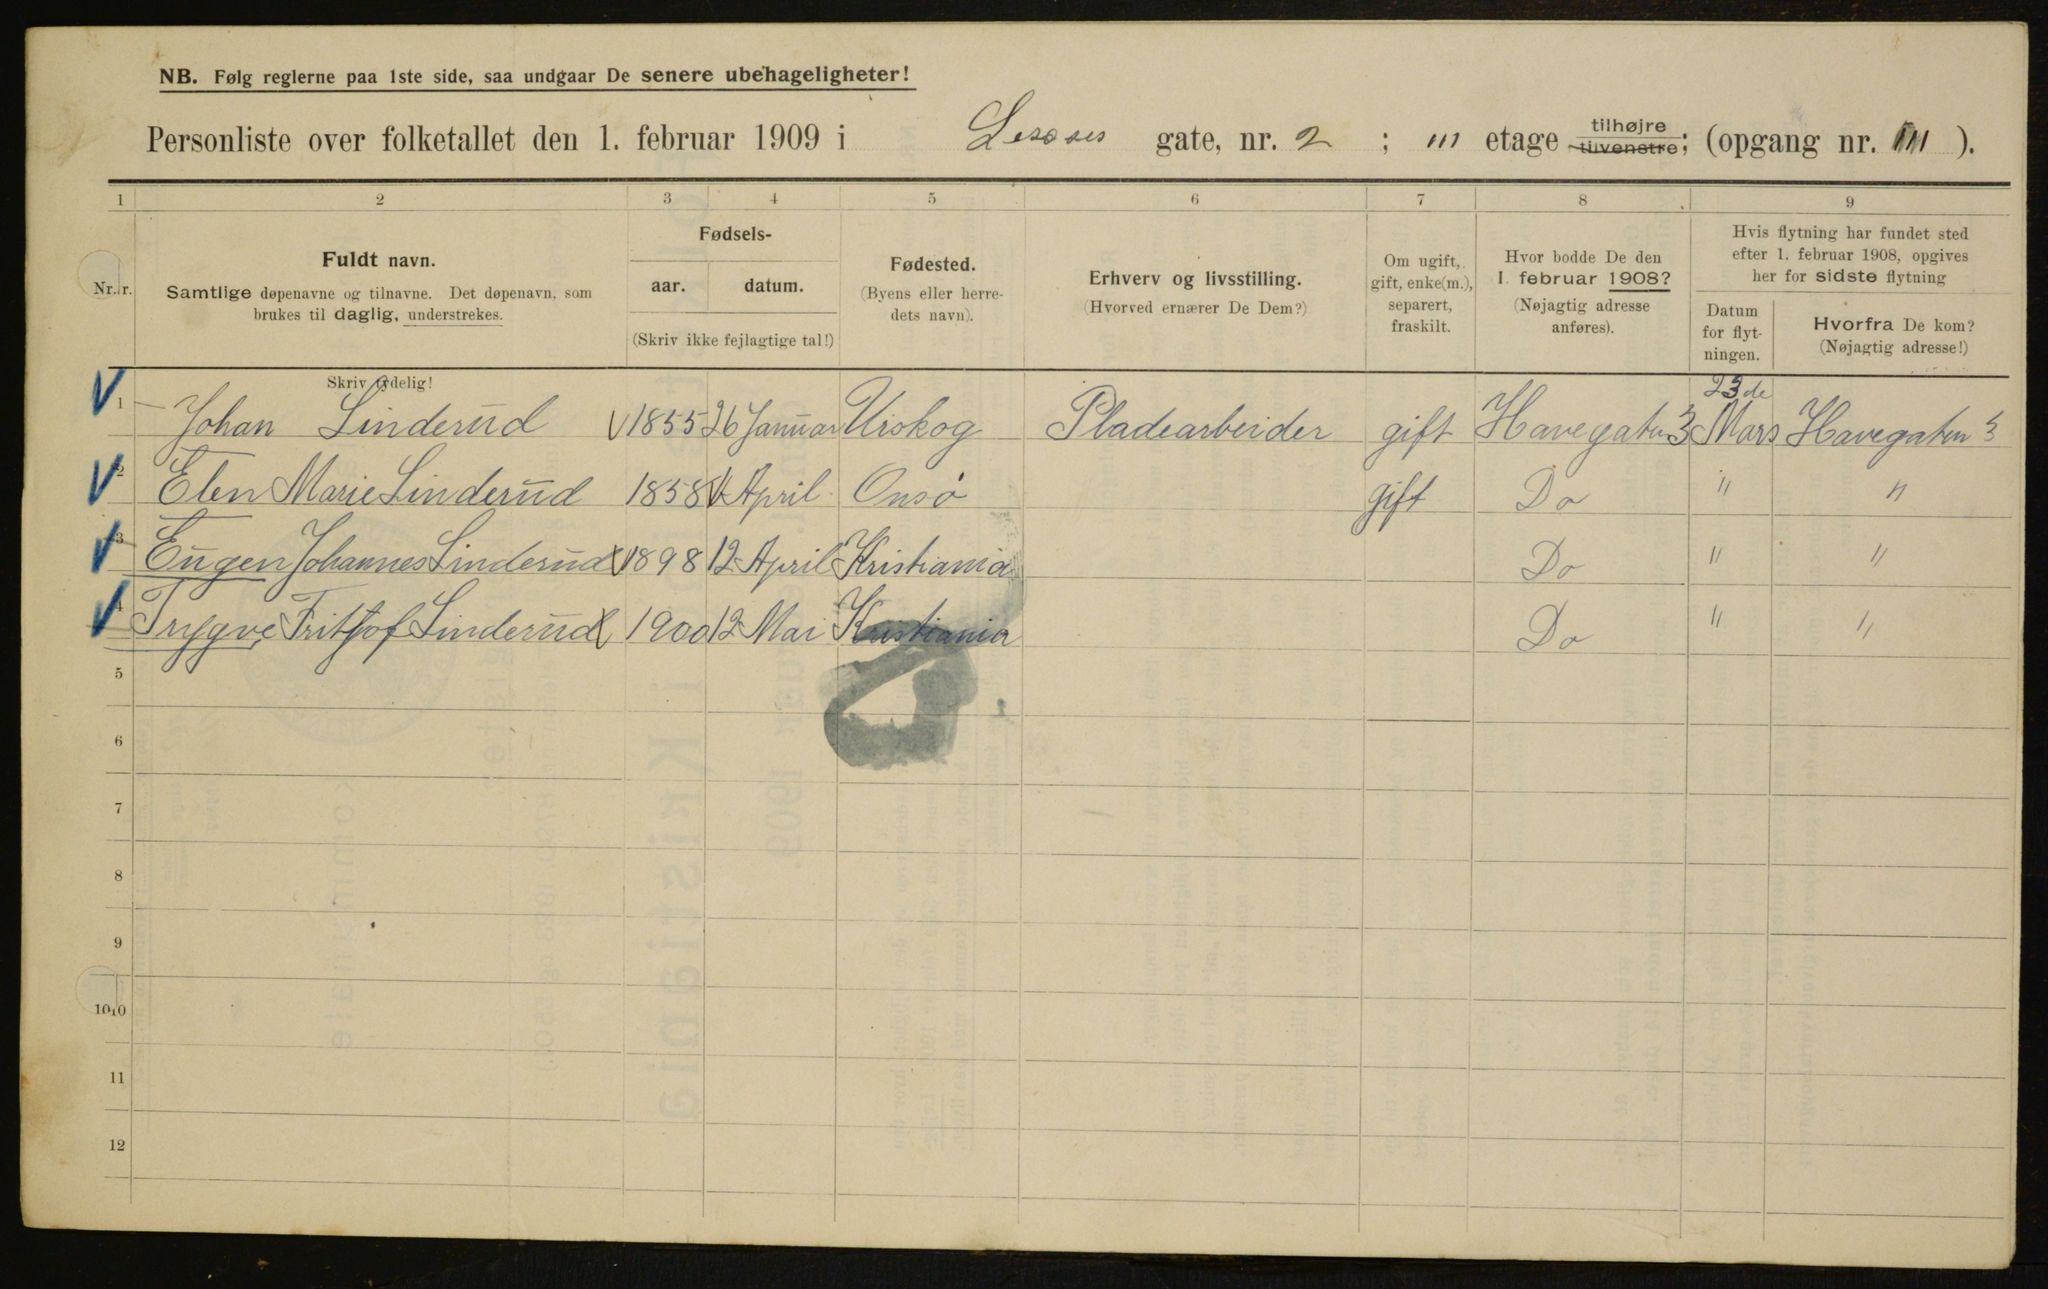 NB. Følg reglerne paa 1ste side, saa undgaar De senere ubehageligheter!
Personliste over folketallet den 1. februar 1909 i gate, nr. 2 ; III etage tilhøjre tilvenstre; (opgang nr. III ).
1 2 3 4 5 6 7 8 9
Nr. Fuldt navn. Samtlige døpenavne og tilnavne. Det døpenavn, som brukes til daglig, understrekes.
Fødsels- aar. datum. (Skriv ikke fejlagtige tal!)
Fødested. (Byens eller herredets navn).
Erhverv og livsstilling. (Hvorved ernærer De Dem?)
Om ugift, gift, enke(m.), separert, fraskilt.
Hvor bodde De den 1. februar 1908? (Nøjagtig adresse anføres).
Hvis flytning har fundet sted efter 1. februar 1908, opgives her for sidste flytning
Datum for flytningen.
Hvorfra De kom? (Nøjagtig adresse!)
Skriv tydelig!
1 Johan Linderud 1855 26 Januar Urskog Pladearbeider gift Havegaten 3 23de Mars Havegaten 3
2 Elen Marie Linderud 1858 April Onsø gift Do " "
3 Eugen Johannes Linderud 1898 12 April Kristiania Do " "
4 Trygve Fritjof Linderud 1900 12 Mai Kristiania Do " "
5
6
7
8
9
10
11
12